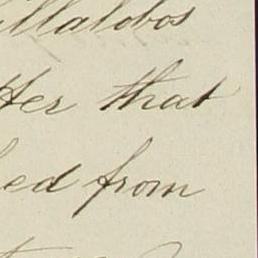 illalobos
tter that
ed from